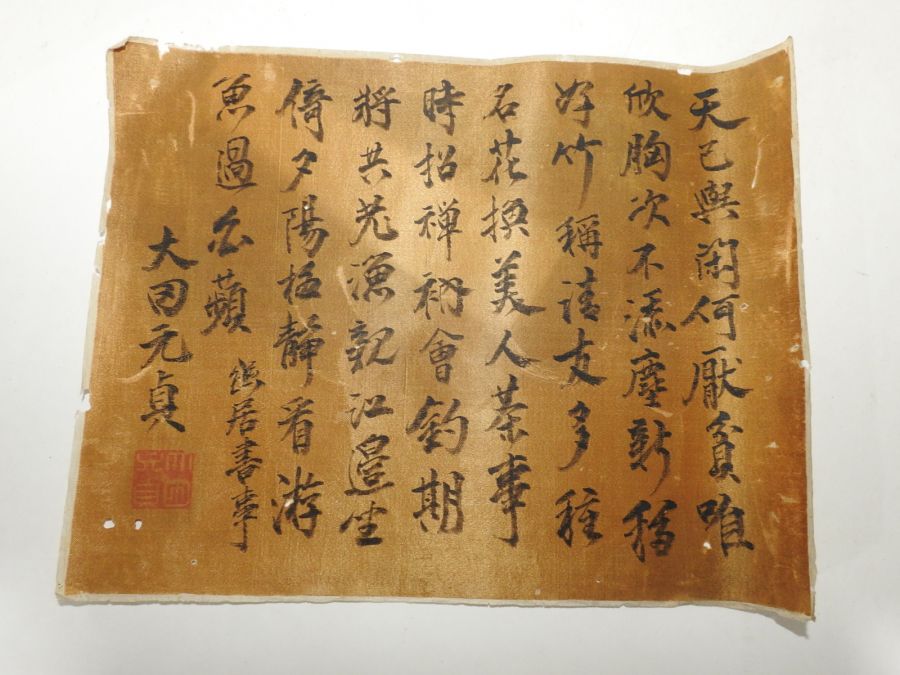 天已與閑何厭貧唯
欣胸次不添塵新移
好竹稱清友多種
名花換美人茶事
時招禅衲會釣期
將共老漁親江邉坐
倚夕陽静看游
魚過白蘋
居書事
大田元貞